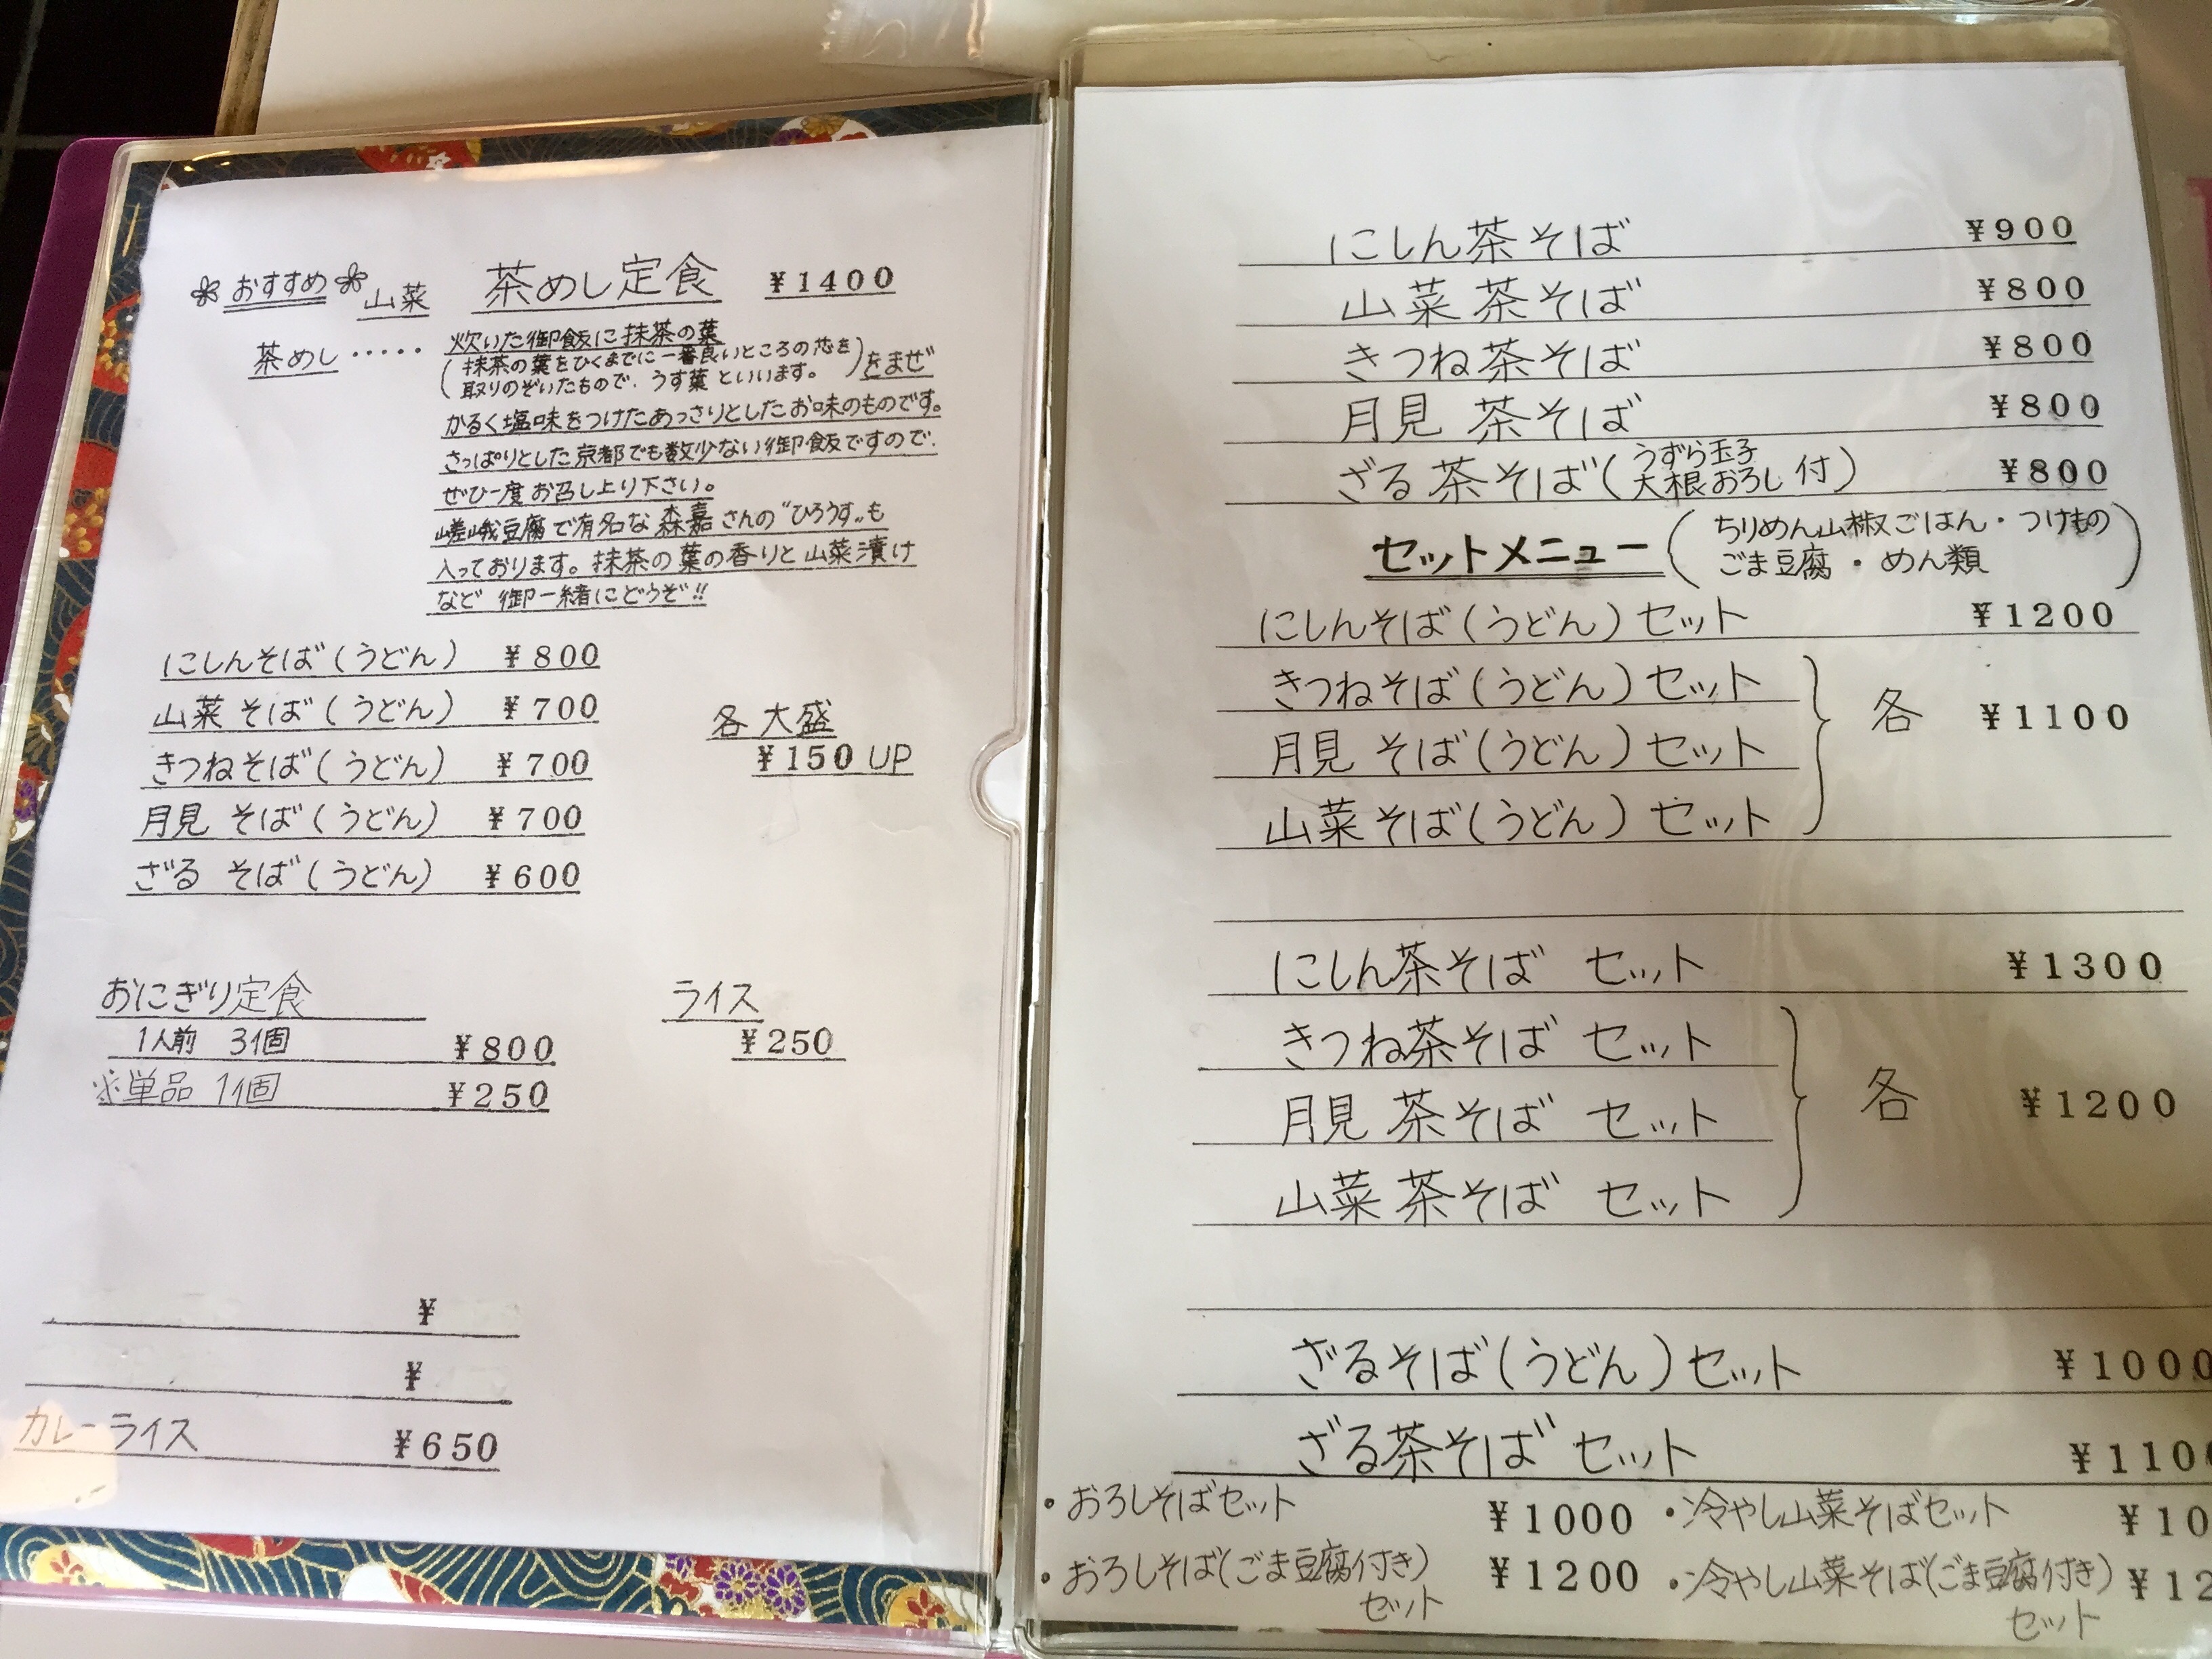 おすすめ 山菜 茶めし定食 ¥1400
茶めし・・・・・ 炊いた御飯に抹茶の葉
(抹茶の葉をひくまでに一番良いところの芯を
取りのぞいたもので、うす葉といいます。)をまぜ
かるく塩味をつけたあっさりとしたお味のものです。
さっぱりとした京都でも数少ない御飯ですので、
ぜひ一度お召し上り下さい。
嵯峨豆腐で有名な森嘉さんの"ひろうす"も
入っております。抹茶の葉の香りと山菜漬け
など御一緒にどうぞ!!
にしんそば(うどん) ¥800
山菜そば(うどん) ¥700
きつねそば(うどん) ¥700
月見そば(うどん) ¥700
ざるそば(うどん) ¥600
各大盛
¥150UP
おにぎり定食
1人前 3個 ¥800
※単品 1個 ¥250
ライス
¥250
¥
¥
カレーライス ¥650
にしん茶そば ¥900
山菜茶そば ¥800
きつね茶そば ¥800
月見茶そば ¥800
ざる茶そば(うずら玉子
大根おろし付) ¥800
セットメニュー(ちりめん山椒ごはん・つけもの
ごま豆腐・めん類)
にしんそば(うどん)セット ¥1200
きつねそば(うどん)セット
月見そば(うどん)セット 各 ¥1100
山菜そば(うどん)セット
にしん茶そば セット ¥1300
きつね茶そば セット
月見茶そば セット 各 ¥1200
山菜茶そば セット
ざるそば(うどん)セット ¥1000
ざる茶そば セット ¥110
・おろしそばセット ¥1000
・おろしそば(ごま豆腐付き) ¥1200
セット
・冷やし山菜そばセット ¥10
・冷やし山菜そば(ごま豆腐付き) ¥12
セット